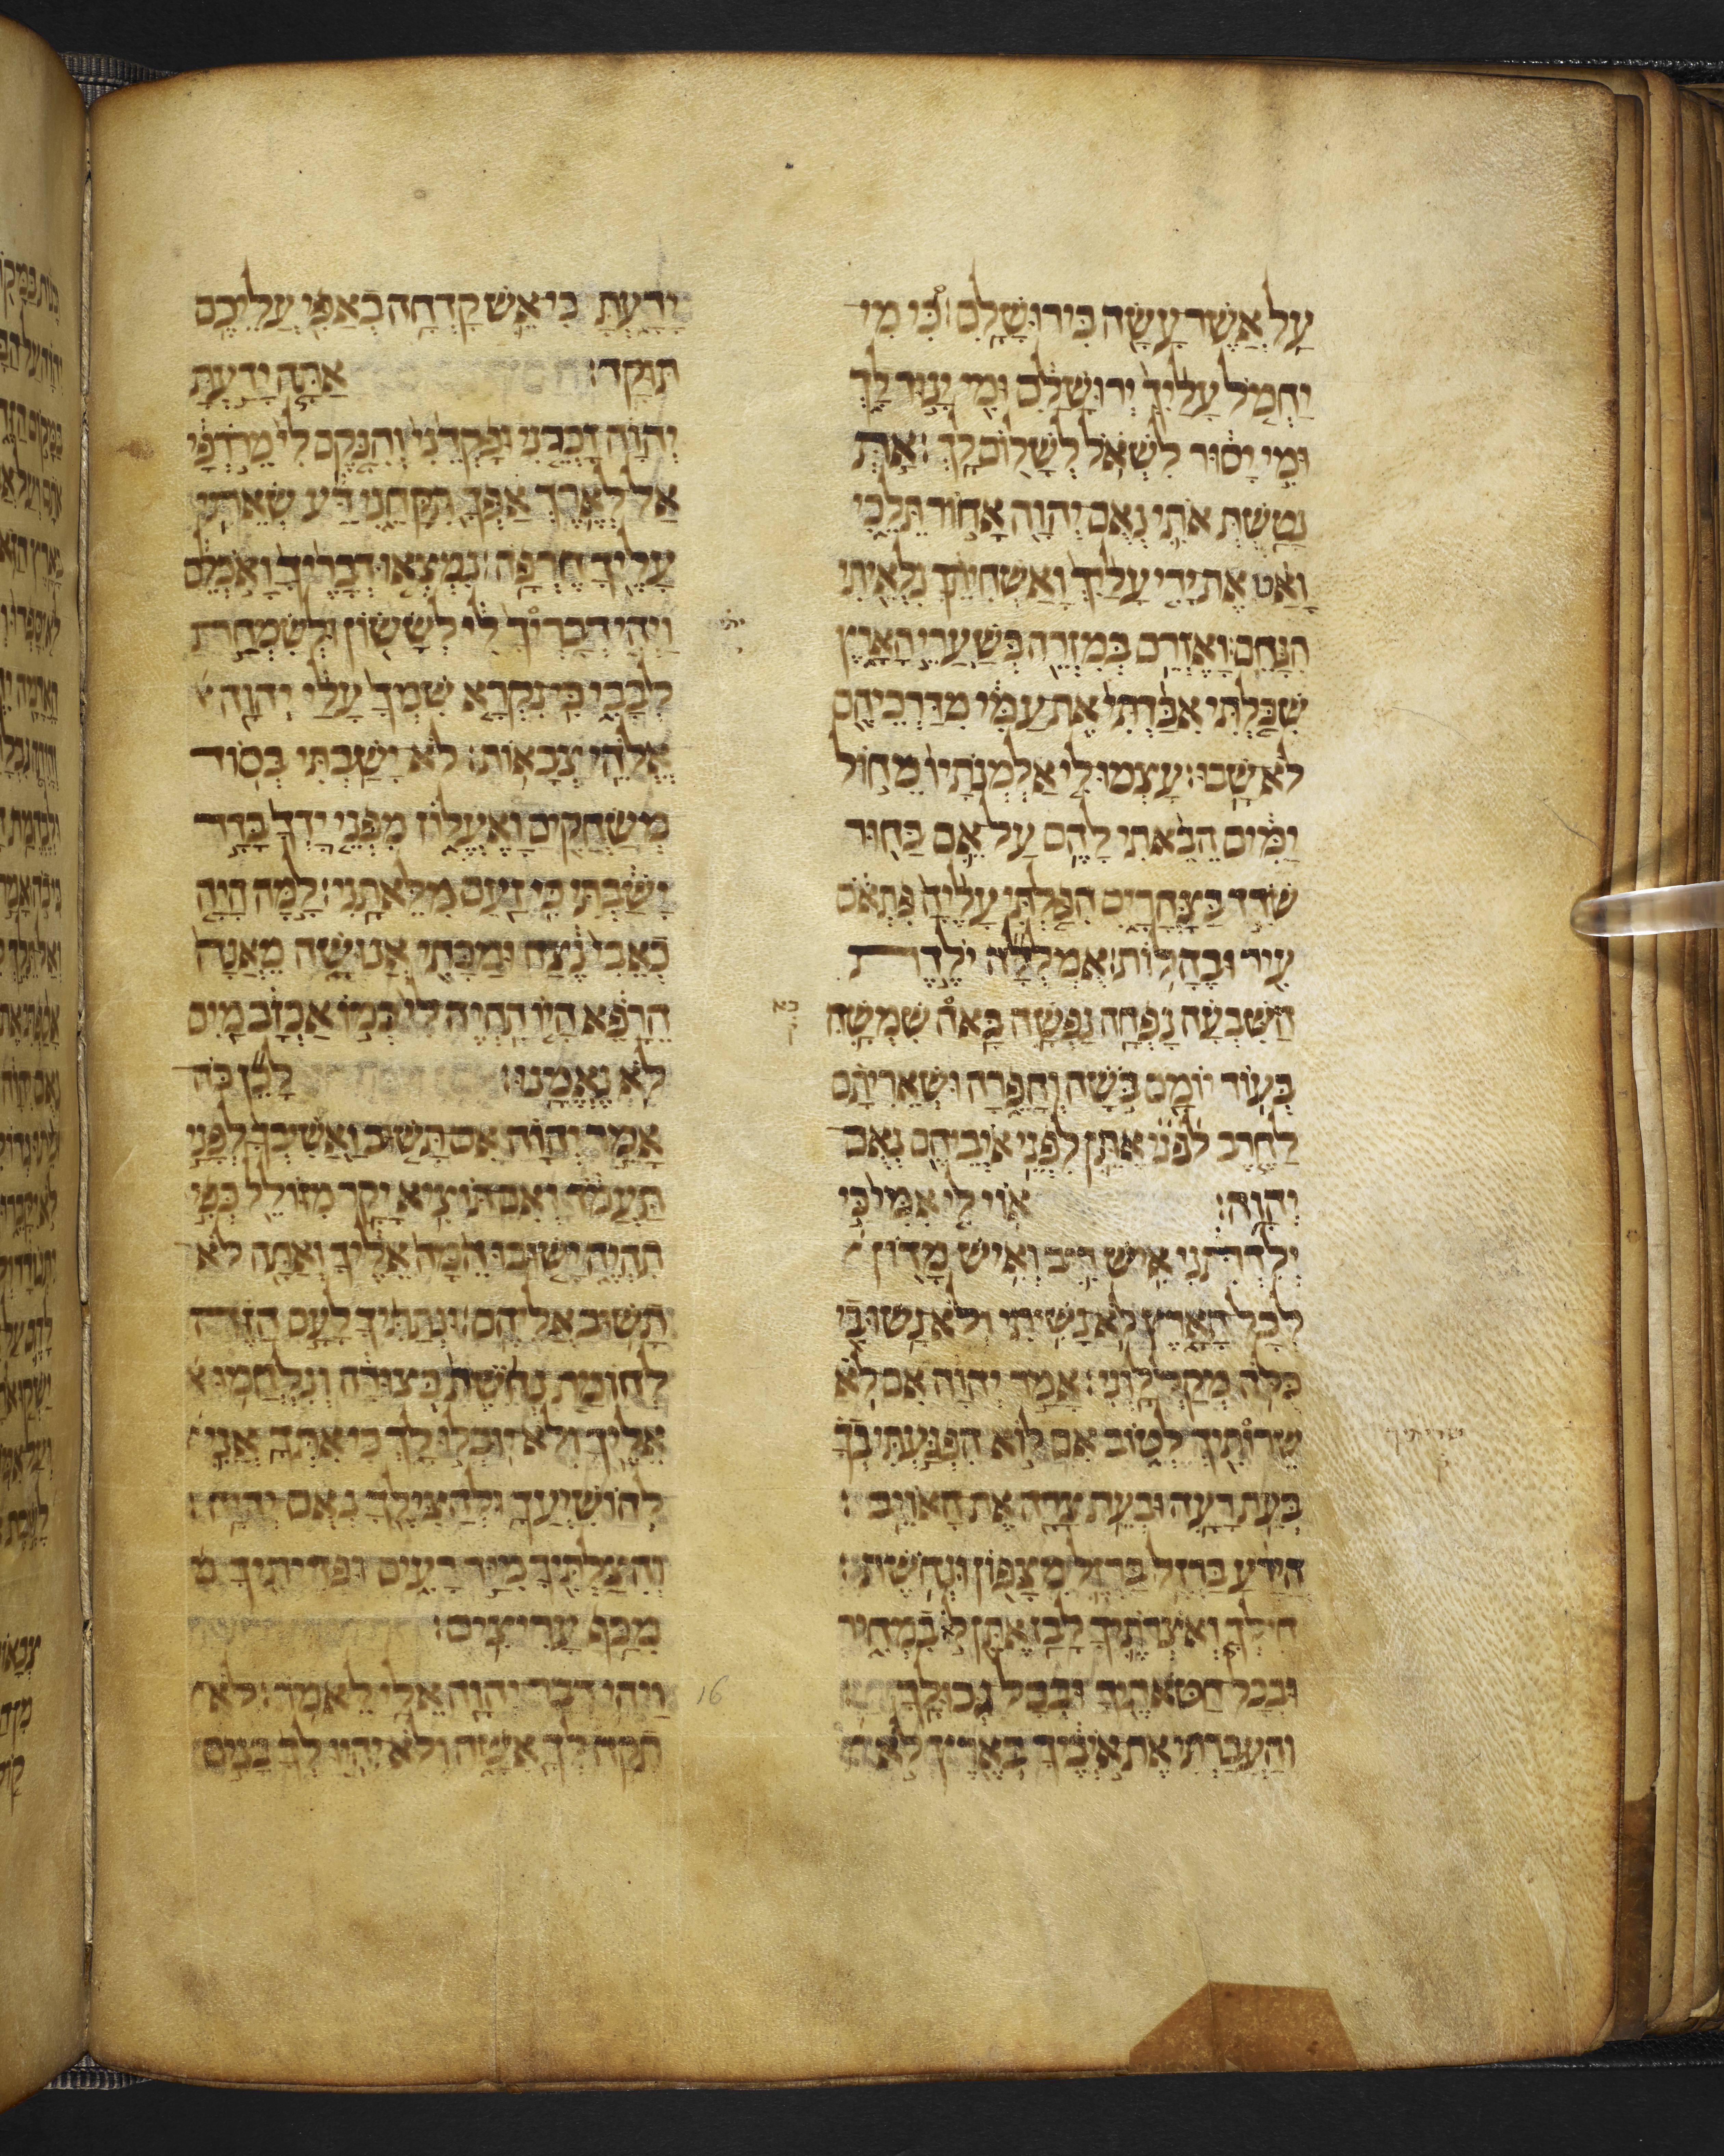 על אשר עשה בירושלם: כי מי
יחמל עליך ירושלם ומי ינוד לך
ומי יסור לשאל לשלום לך: את
נטשת אתי נאם יהוה אחור תלכי
ואט את ידי עליך ואשחיתך נלאיתי
הנחם: ואזרם במזרה בשערי הארץ
שכלתי אבדתי את עמי מדרכיהם
לא שבו: עצמו לי אלמנתיו מחול
ימים הבאתי להם על אם בחור
שדד בצהרים הפלתי עליה פתאם
עיר ובהלות: אמללה ילדת
השבעה נפחה נפשה באה שמשה
בא
ק
בעוד יומם בשה וחפרה ושאריתם
לחרב לפני אתן לפני איביהם נאם
יהוה: אוי לי אמי כי
ילדתני איש ריב ואיש מדון
לכל הארץ לא נשיתי ולא נשו בי
כלה מקללוני: אמר יהוה אם לא
שרותיך לטוב אם לוא הפגעתי בך
שריתיך
ק
בעת רעה ובעת צרה את האויב:
הירע ברזל ברזל מצפון ונחשת:
חילך ואצרתיך לבז אתן לא במחיר
ובכל חטאתיך ובכל גבוליך
והעברתי את איביך בארץ לא
ידעת כי אש קדחה באפי עליכם
תוקד: אתה ידעת
יהוה זכרני ופקדני והנקם לי מרדפי
אל לארך אפך תקחני דע שאתי
עליך חרפה: נמצאו דבריך ואכלם
ויהי דבריך לי לששון ולשמחת
לבבי כי נקרא שמך עלי יהוה
אלהי צבאות: לא ישבתי בסוד
משחקים ואעלוז מפני ידך בדד
ישבתי כי זעם מלאתני: למה היה
כאבי נצח ומכתי אנושה מאנה
הרפא היו תהיה לי כמו אכזב מים
לא נאמנו: לכן כה
אמר יהוה אם תשוב ואשיבך לפני
תעמד ואם תוציא יקר מזולל כפי
תהיה ישובו המה אליך ואתה לא
תשוב אליהם: ונתתיך לעם הזה
לחומת נחשת בצורה ונלחמו
אליך ולא יוכלו לך כי אתך אני
להושיעך ולהצילך נאם יהוה:
והצלתיך מיד רעים ופדיתיך מ
מכף עריצים:
16
ויהי דבר יהוה אלי לאמר: לא
תקח לך אשה ולא יהיו לך בנים